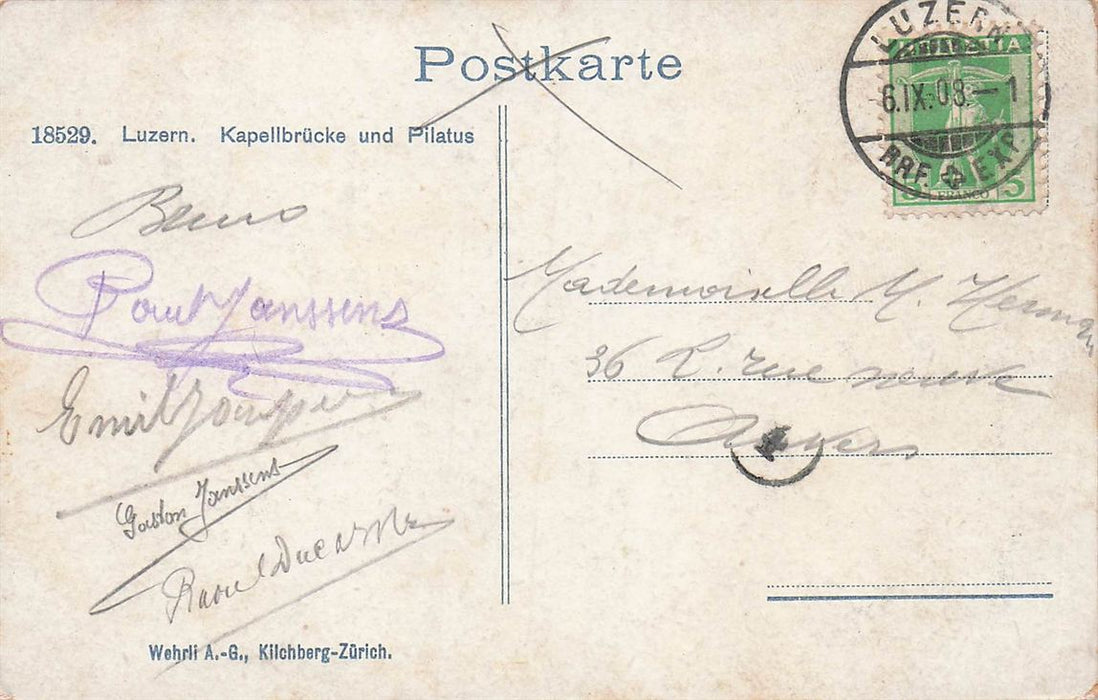 Postkarte
18529. Luzern. Kapellbrücke und Pilatus
LUZERN
6.IX.08.—1
BRF. EXP.
HELVETIA
5 FRANCO 5
Paul Janssens
Emil
Gaston Janssens
Raoul
Mademoiselle M. Herman
36 R. rue neuve
Anvers
1
Wehrli A.-G., Kilchberg-Zürich.